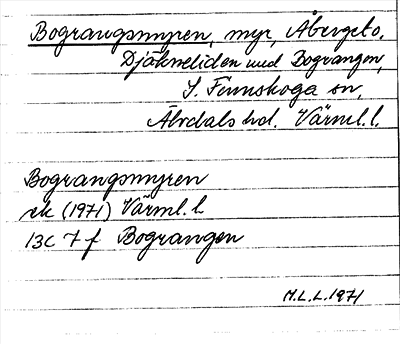 Bograngsmyren, myr, Åbergeto.
Djäkneliden med Bograngen,
S. Finnskoga sn,
Älvdals hd. Värml. l.
Bograngsmyren
ek (1971) Värml. l.
13C 7 f Bograngen
M.L.L. 1971